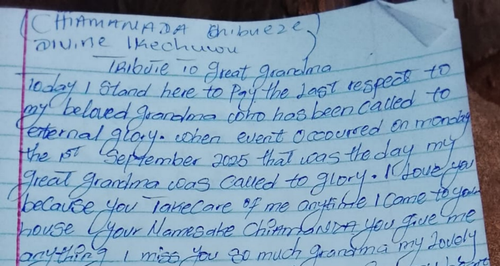 CHIAMANADA Chibueze
Divine Ikechukwu
Tribute To Great Grandma
Today I stand here to pay the last respect to
my beloved grandma who has been called to
external glory. when event occourred on monday
the 1st September 2025 that was the day my
great grandma was called to glory. I Love you
because you Takecare of me anytime I came to your
house your Namesake CHIAMANDA you give me
anything I miss you so much grandma my lovely